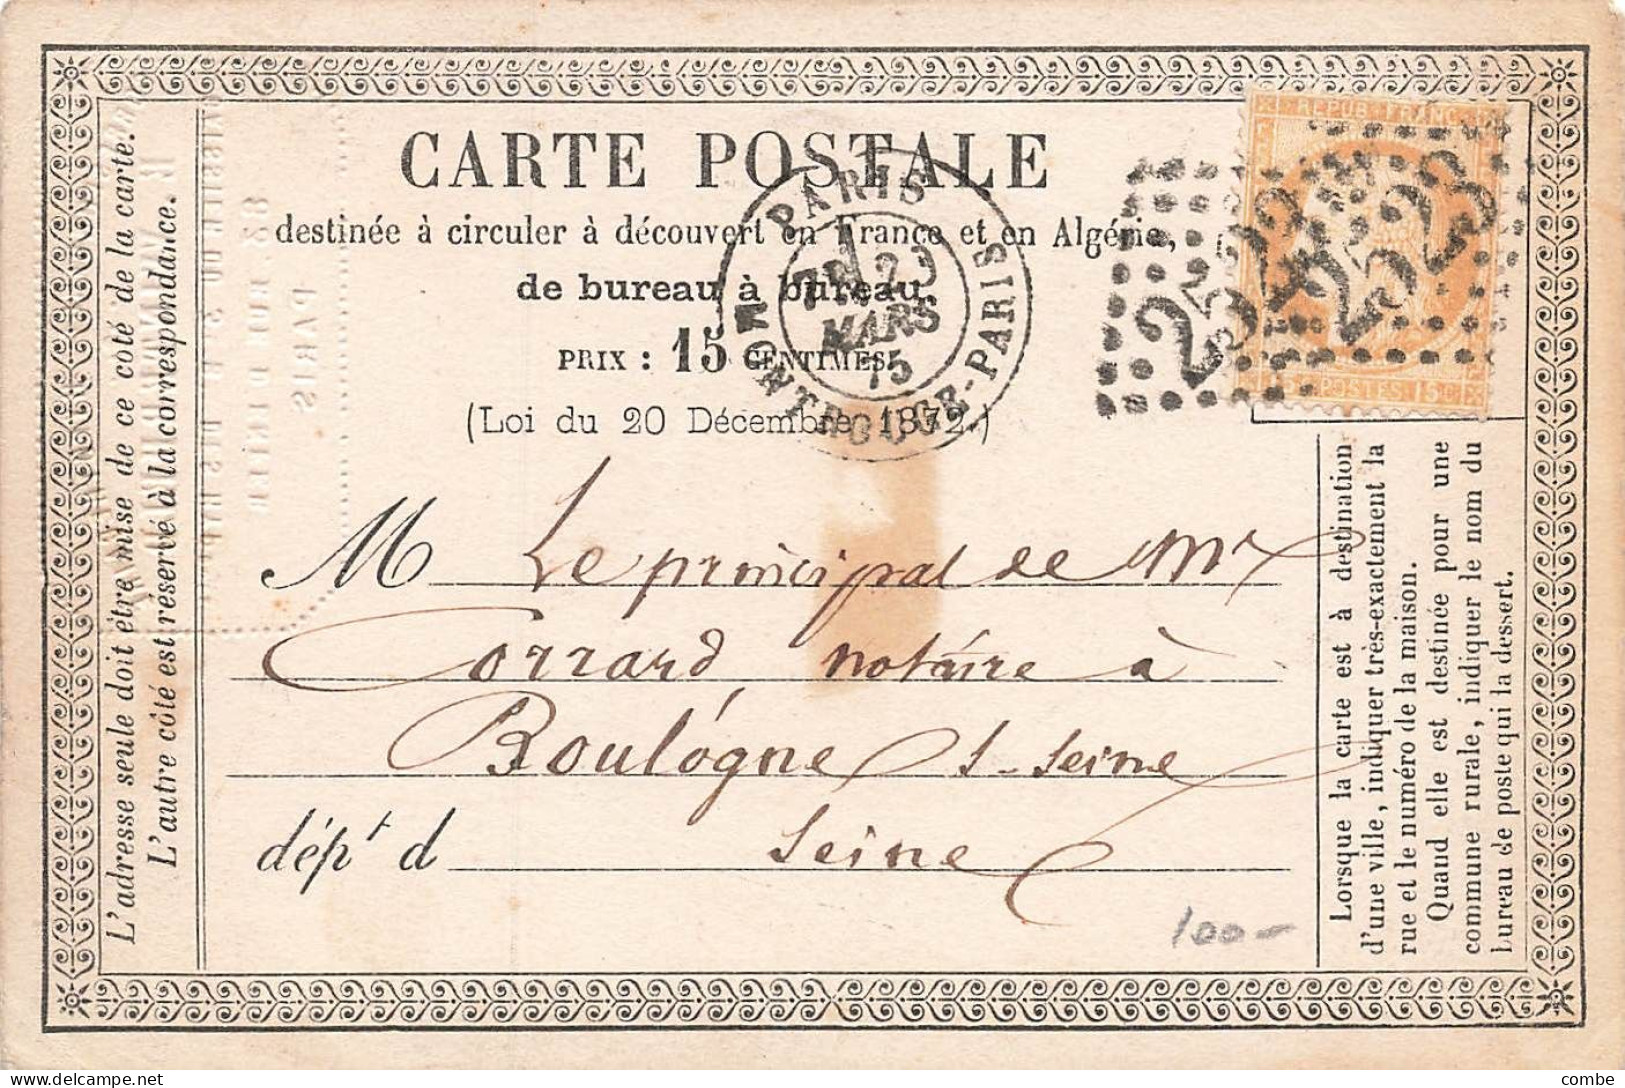 CARTE POSTALE
destinée à circuler à découvert en France et en Algérie,
de bureau à bureau.
PRIX : 15 CENTIMES.
(Loi du 20 Décembre 1872.)
PARIS
MARS
75
MONTROUGE-PARIS
REPUB FRANC
POSTES 15 C
2523
2523
L'adresse seule doit être mise de ce coté de la carte.
L'autre côté est réservé à la correspondance.
PARIS
M Le principal de Mr
Corrard notaire à
Boulogne s-seine
dépt d Seine
Lorsque la carte est à destination
d'une ville, indiquer très-exactement la
rue et le numéro de la maison.
Quand elle est destinée pour une
commune rurale, indiquer le nom du
bureau de poste qui la dessert.
100-
combe